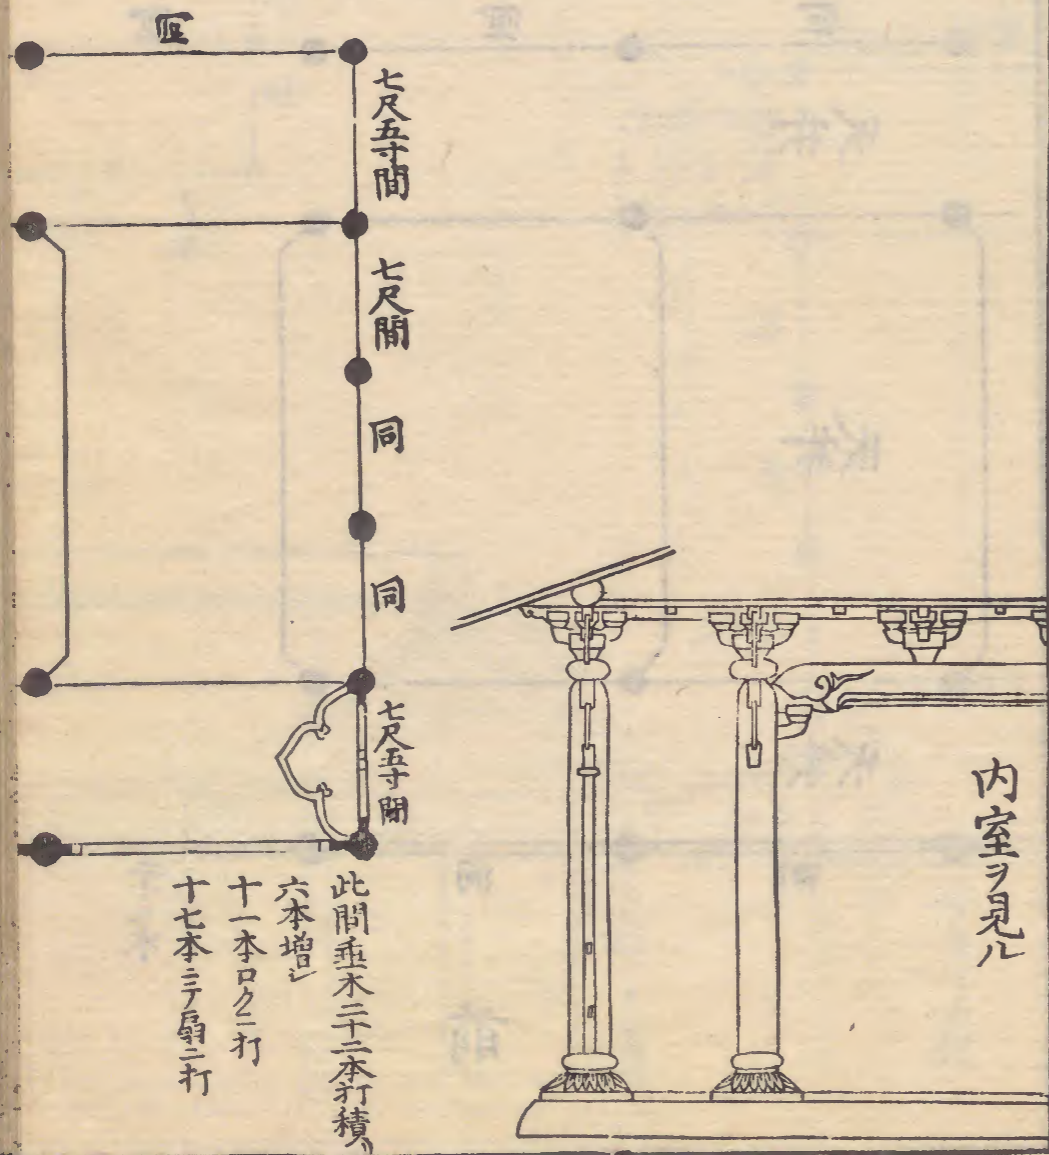 内室ヲ見ル
七尺五寸間
七尺間
同
同
七尺五寸間
此間垂木二十二本打積リ
六本増シ
十一本ロクニ打
十七本ニテ扇ニ打